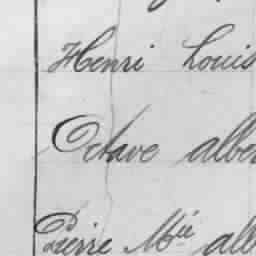 Henri Louis
Octave albe
Pierre Mii alb